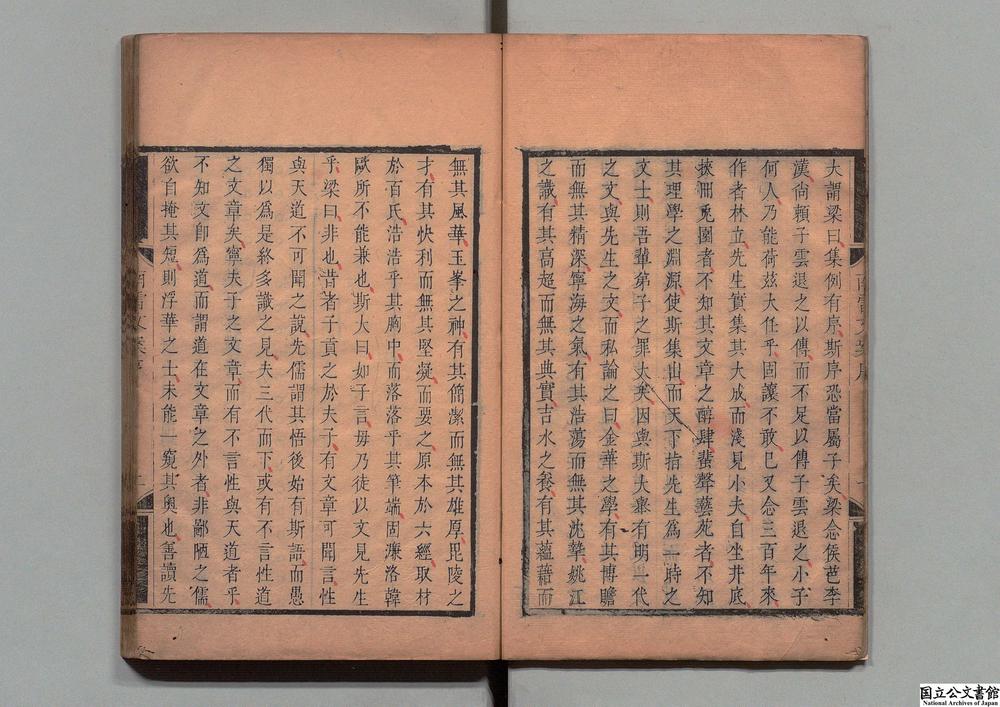 大謂梁曰集例有序斯序恐當屬子矣梁念侯芭李
漢尙賴子雲退之以傳而不足以傳子雲退之小子
何人乃能荷茲大任乎固讓不敢已又念三百年來
作者林立先生實集其大成而淺見小夫自坐井底
挾冊兎園者不知其文章之醇肆蜚聲藝苑者不知
其理學之淵源使斯集出而天下指先生爲一時之
文士則吾輩弟子之罪大矣因與斯大舉有明一代
之文與先生之文而私論之曰金華之學有其博贍
而無其精深寧海之氣有其浩蕩而無其沈摯姚江
之識有其高超而無其典實吉水之養有其蘊藉而
無其風華玉峯之神有其簡潔而無其雄厚毘陵之
才有其快利而無其堅凝而要之原本於六經取材
於百氏浩浩乎其胸中而落落乎其筆端固濂洛韓
歐所不能兼也斯大曰如子言毋乃徒以文見先生
乎梁曰非也昔者子貢之於夫子有文章可聞言性
與天道不可聞之說先儒謂其悟後始有斯語而愚
獨以爲是終多識之見夫三代而下或有不言性道
之文章矣寧夫子之文章而有不言性與天道者乎
不知文卽爲道而謂道在文章之外者非鄙陋之儒
欲自掩其短則浮華之士未能一窺其奥也善讀先
国立公文書館
National Archives of Japan